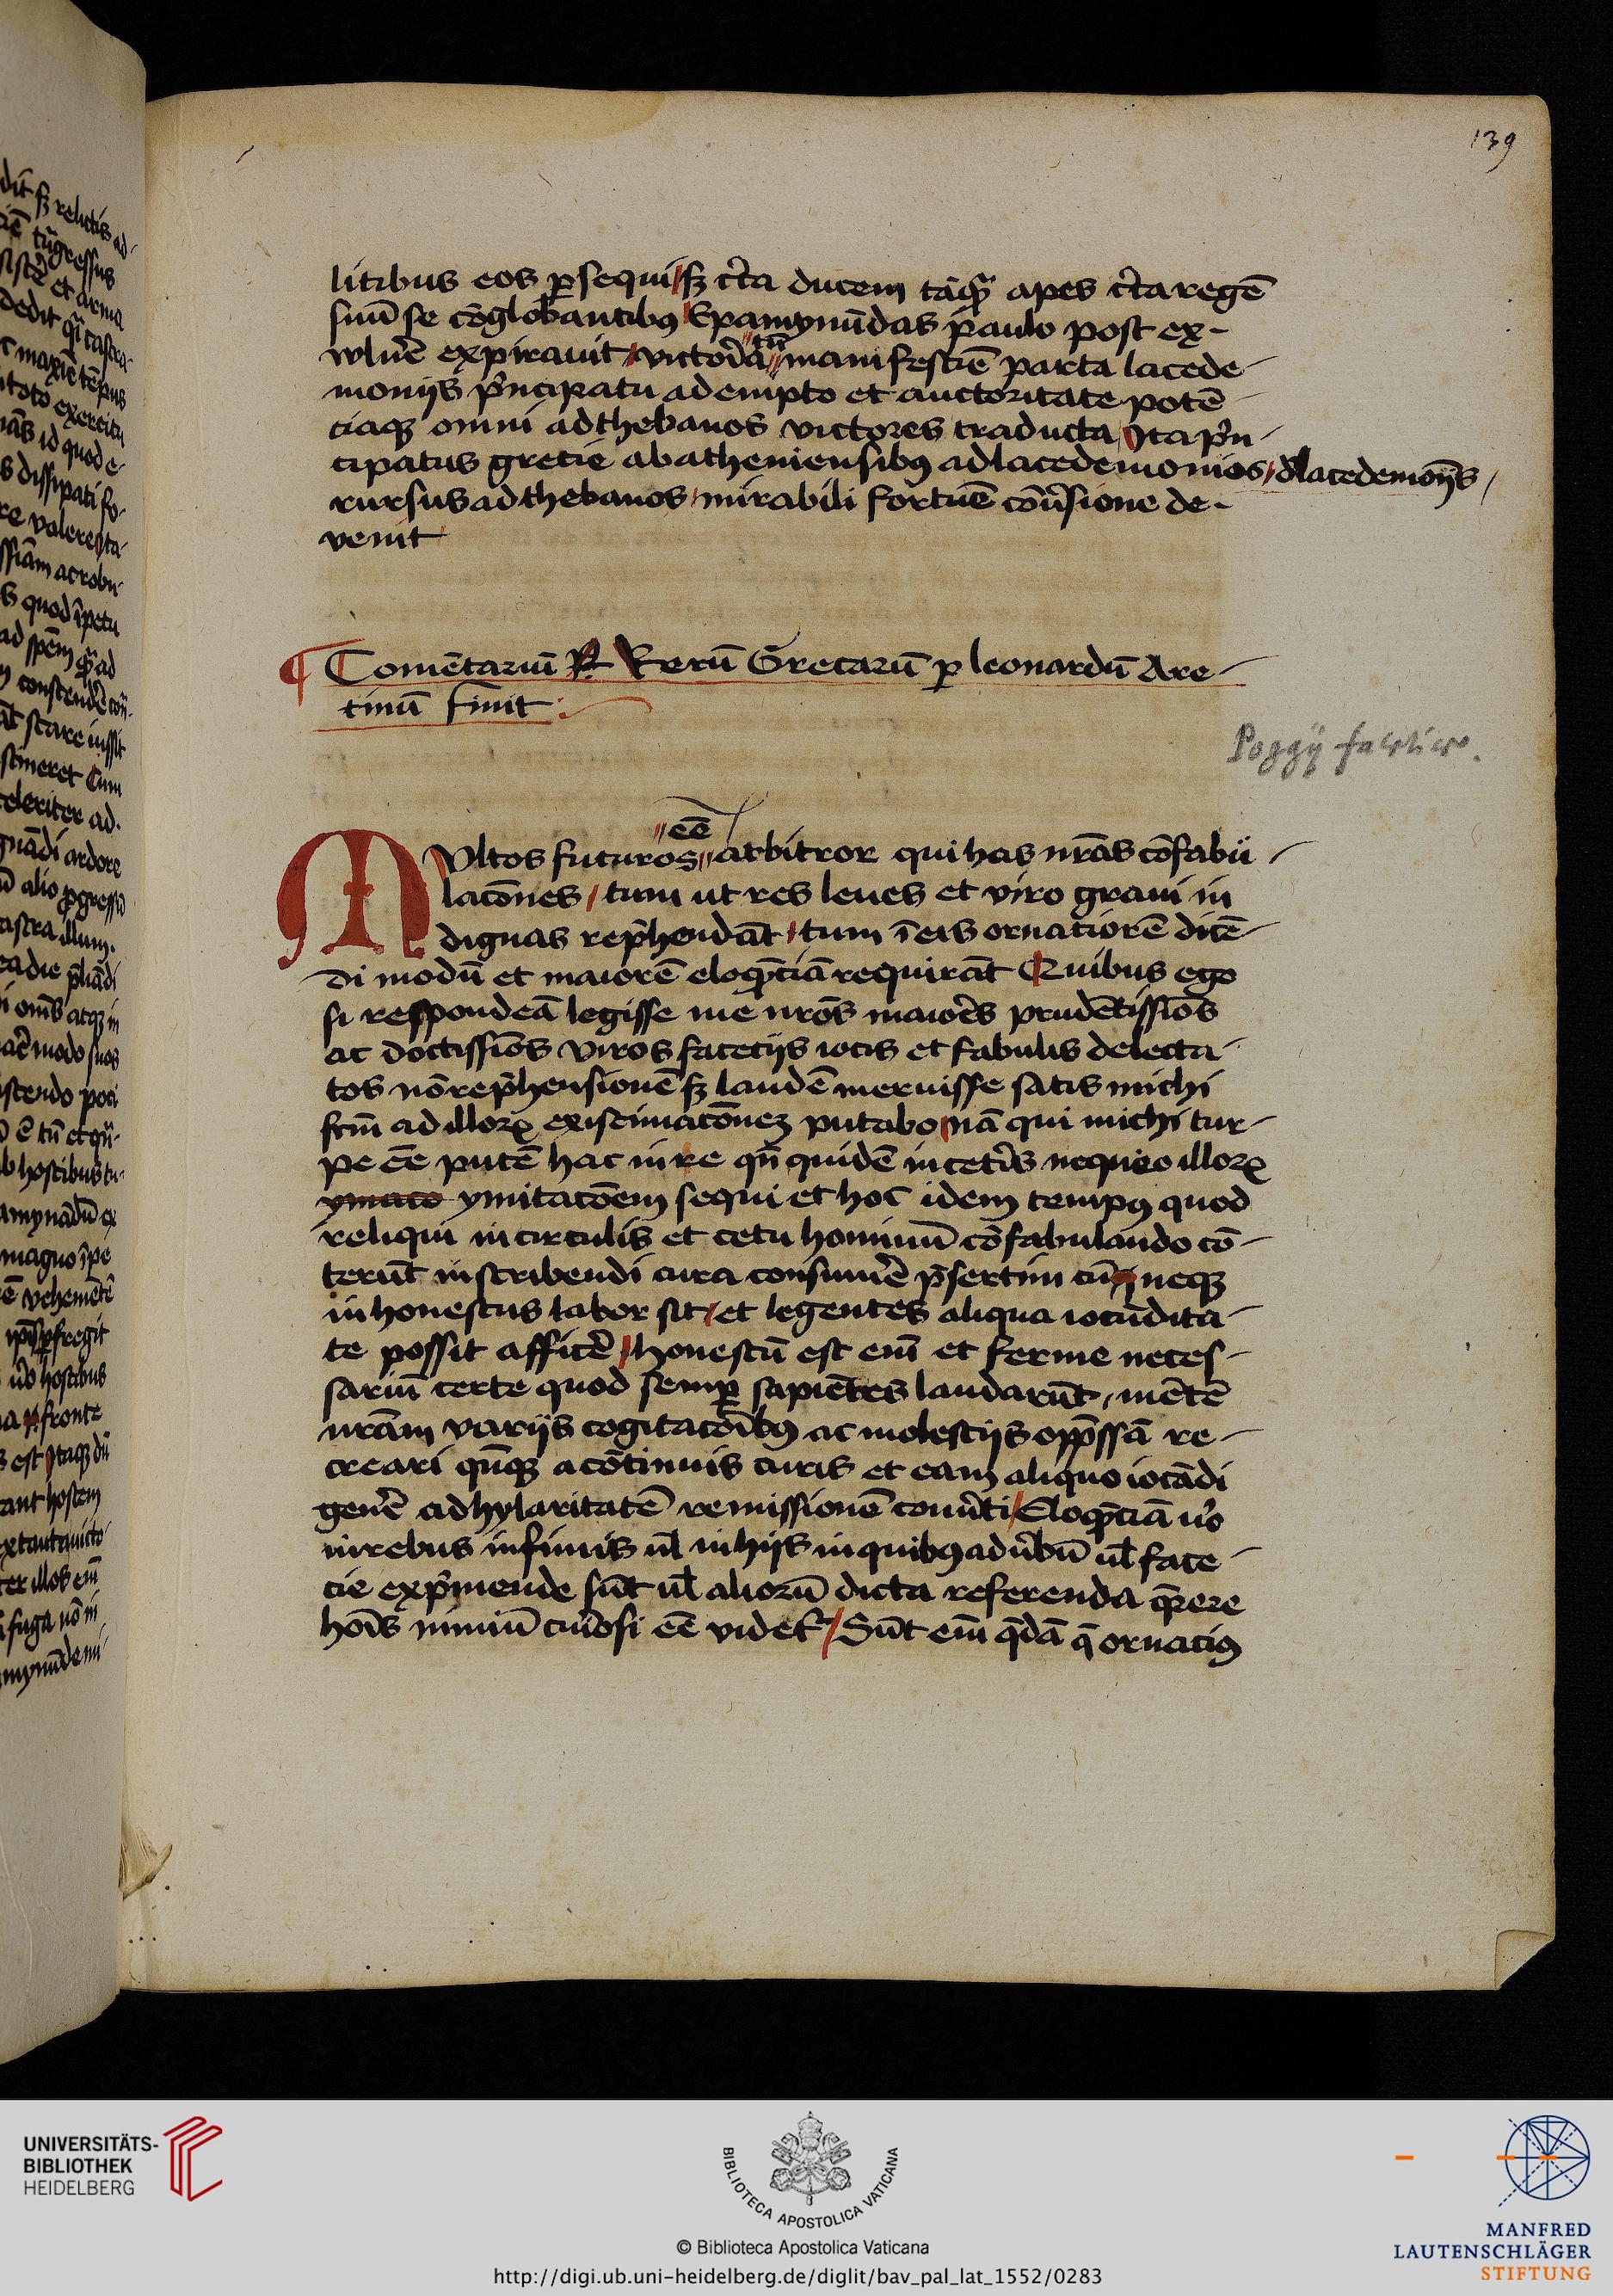 139
litibus eos ꝑsequi / sꝫ c̃ta ducem tãqᷓ apes c̃ta regẽ
suũ se cõglobantibꝰ Epamynũdas paulo post ex-
vlnẽ expirauit / victoria tñ manifestiẽ parta lacede-
monijs pͥncipatu adempto et auctoritate potẽ-
ciaqꝫ omni ad thebanos victores traducta Ita pͥn-
cipatus grecie ab atheniensibꝰ ad lacedemonios / d' lacedemonijs /
rursus ad thebanos / mirabili fortũe cõũsione de-
venit
¶ Comẽtariũ Rerũ Grecarũ ꝑ leonardũ Are-
tinũ finit :
Poggij facetiae.
MVltos futuros eẽ arbitror qui has nrãs cõfabu-
lacões / tum ut res leues et viro graui in
dignas rep̃hendãt / tum ĩ eis ornatiorẽ dicẽ-
di modũ et maiorẽ eloqᷓciã requirãt Quibus ego
si respondeã legisse me nrõs maiores prudẽtissiõs
ac doctissiõs viros facecijs iocis et fabulis delecta-
tos nõ rep̃hensionẽ sꝫ laudẽ meruisse satis michi
fcm̃ ad illorꝝ existimacõnez putabo nã qui michi tur-
pe eẽ putẽ hac in re qñ quidẽ in cetĩs nequeo illorꝝ
ymaco ymitacõem sequi et hoc idem tempꝰ quod
reliqui in circulis et cetu hominũ cõfabulando cõ-
terũt in scribendi cura consumẽ p̃sertim cũ neqꝫ
in honestus labor sit / et legentes aliqua iocũdita-
te possit afficẽ / honestũ est em̃ et ferme neces-
sariũ certe quod semꝑ sapiẽtes laudarũt, mẽtẽ
nrãm varijs cogitacõibꝰ ac molestijs opp̃ssã re-
creari qñqꝫ a cõtinuis curis et eam aliquo iocãdi
genẽ ad hylaritatẽ remissionẽ conũti / Eloqᷓciã ṽo
in rebus infimis ul̃ in hijs in quibꝰ ad ũbũ ul̃ face-
cie exp̃mende sũt ul̃ aliorũ dicta referenda q̃rere
hoĩs nimiũ curiosi eẽ videt᷑ / Sũt em̃ q̃dã q̃ ornatiꝰ
UNIVERSITÄTS-
BIBLIOTHEK
HEIDELBERG
BIBLIOTECA APOSTOLICA VATICANA
© Biblioteca Apostolica Vaticana
http://digi.ub.uni-heidelberg.de/diglit/bav_pal_lat_1552/0283
MANFRED
LAUTENSCHLÄGER
STIFTUNG